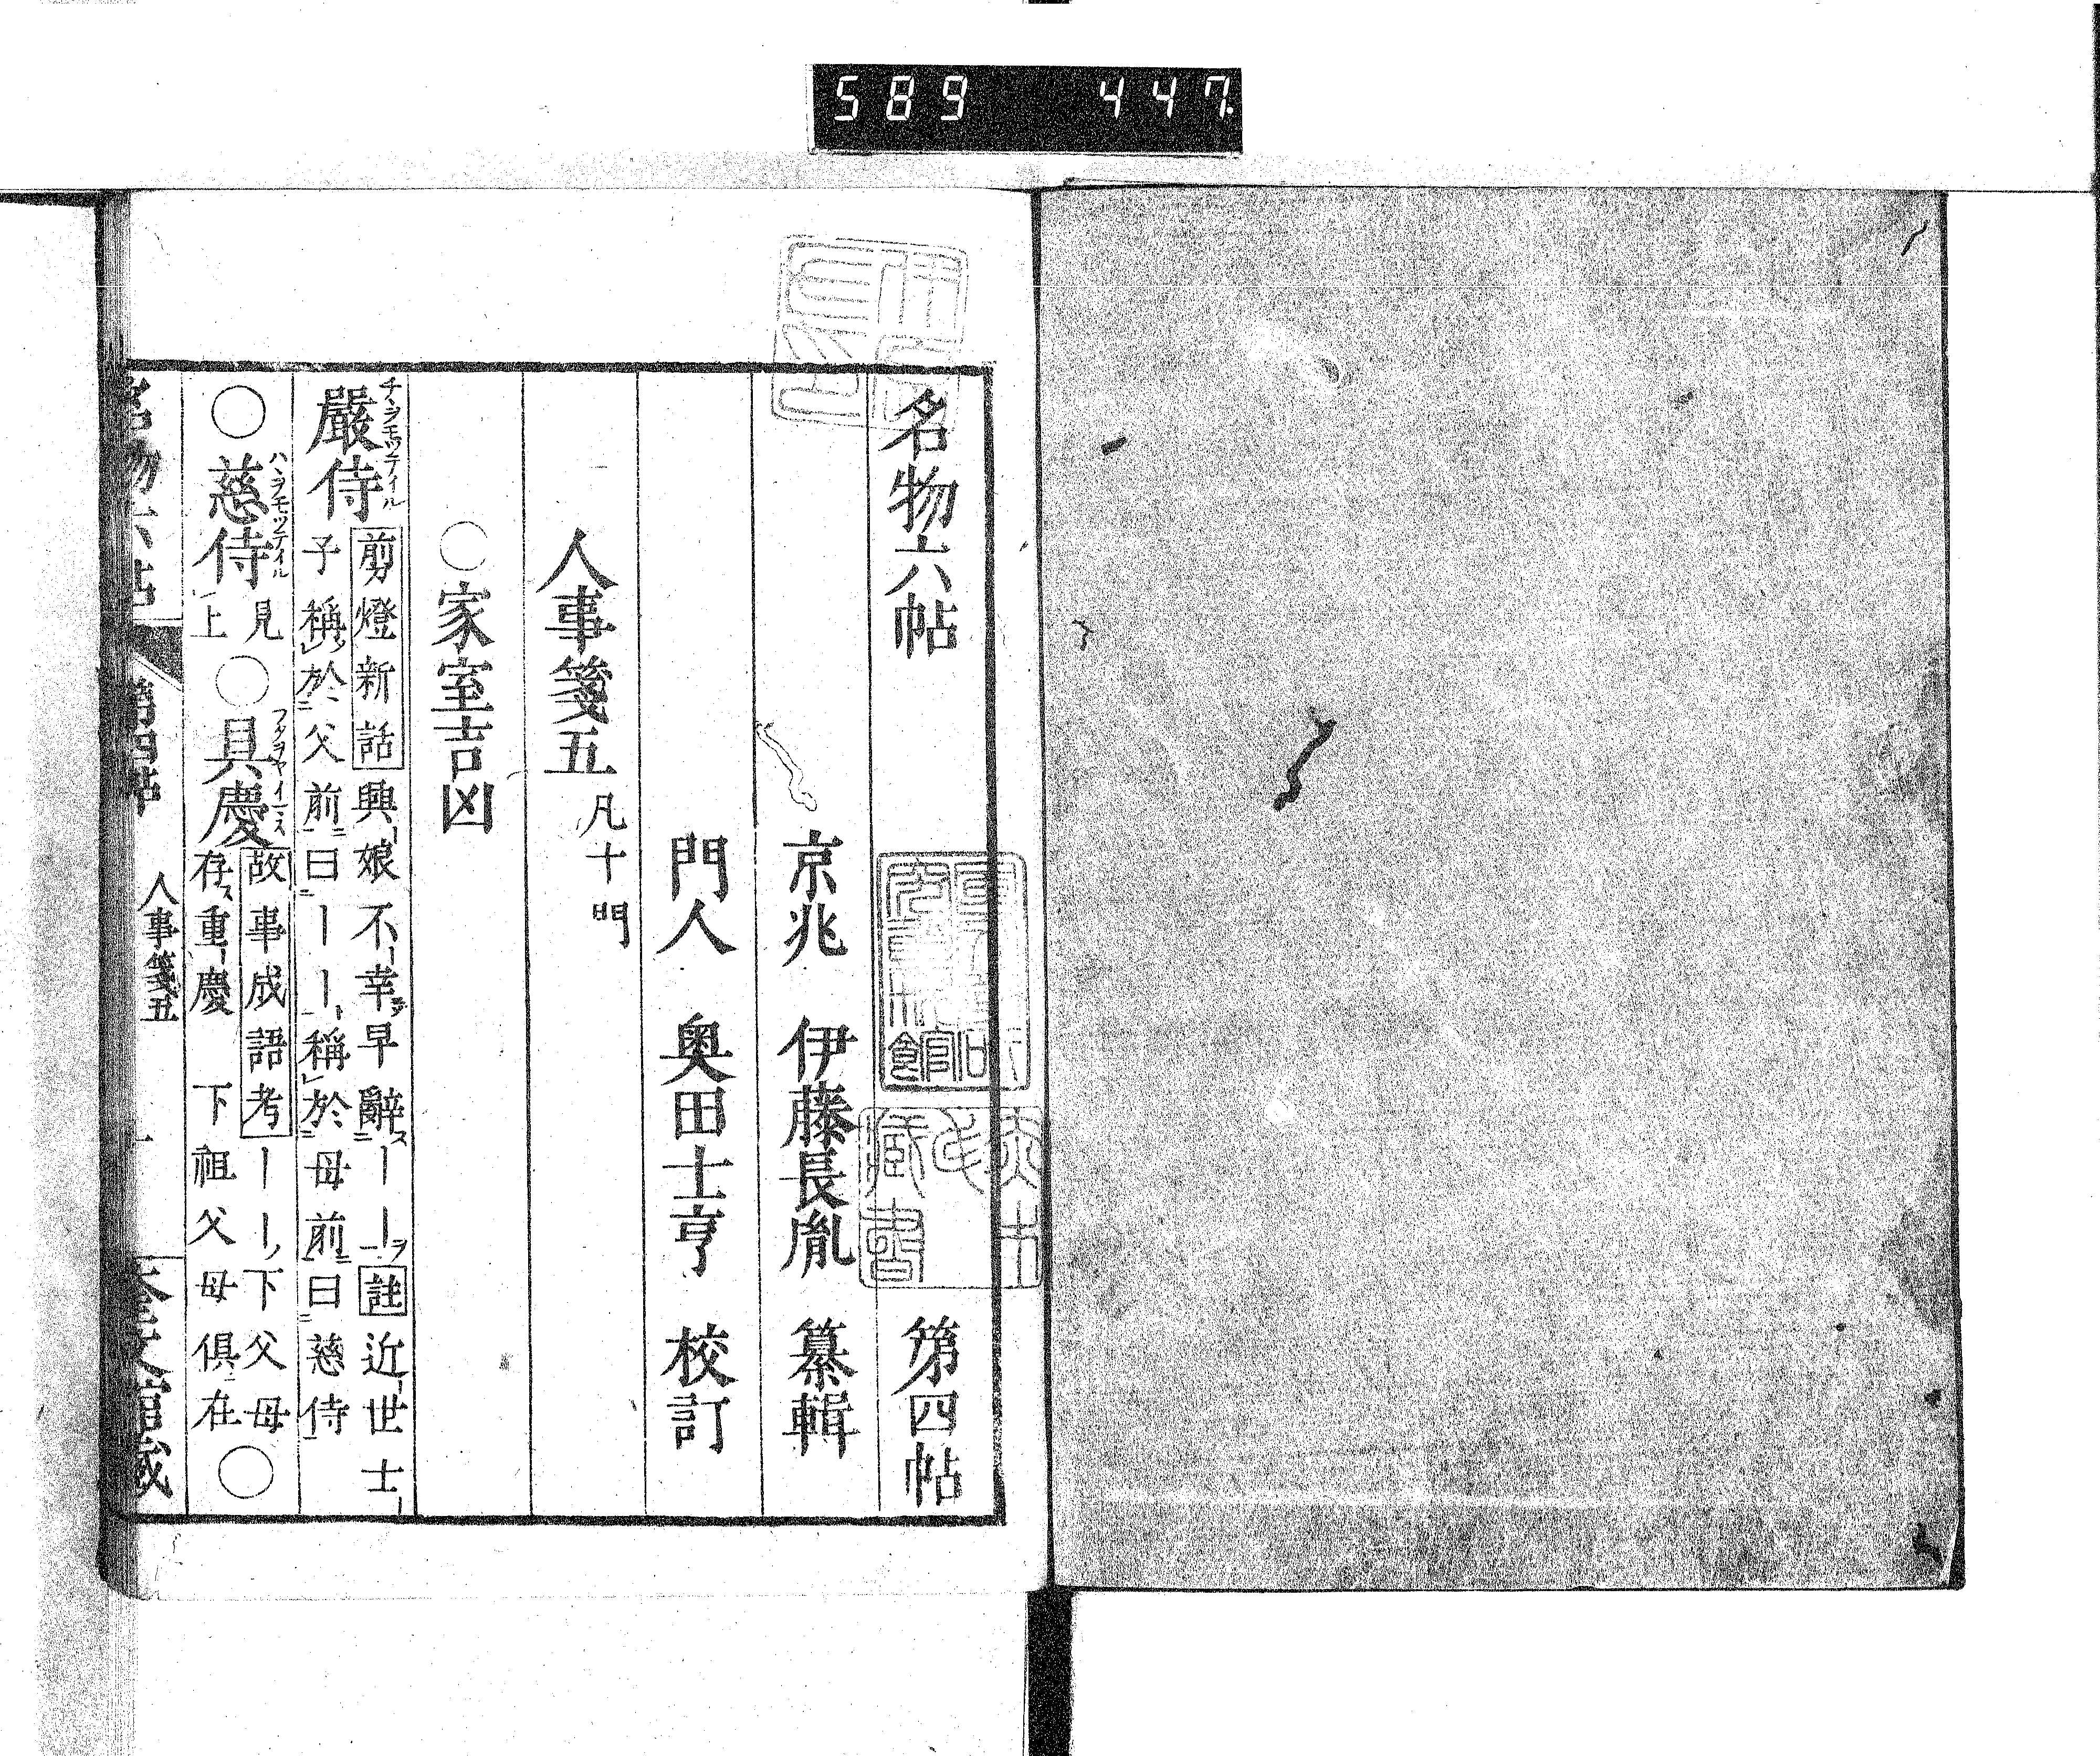 589 447
名物六帖 第四帖
京兆 伊藤長胤 纂輯
門人 奥田士亨 校訂
人事箋五 凡十門
○家室吉凶
嚴侍 チヽヲモツテイル
剪燈新話 興娘不幸早辭──ヲ 註 近世士
子稱於父前曰──稱於母前曰慈侍
○慈侍 ハヽヲモツテイル 見上 ○具慶
故事成語考 ──ノ下父母
存ス重慶下祖父母俱在 ○
名物六帖 第四帖 人事箋五